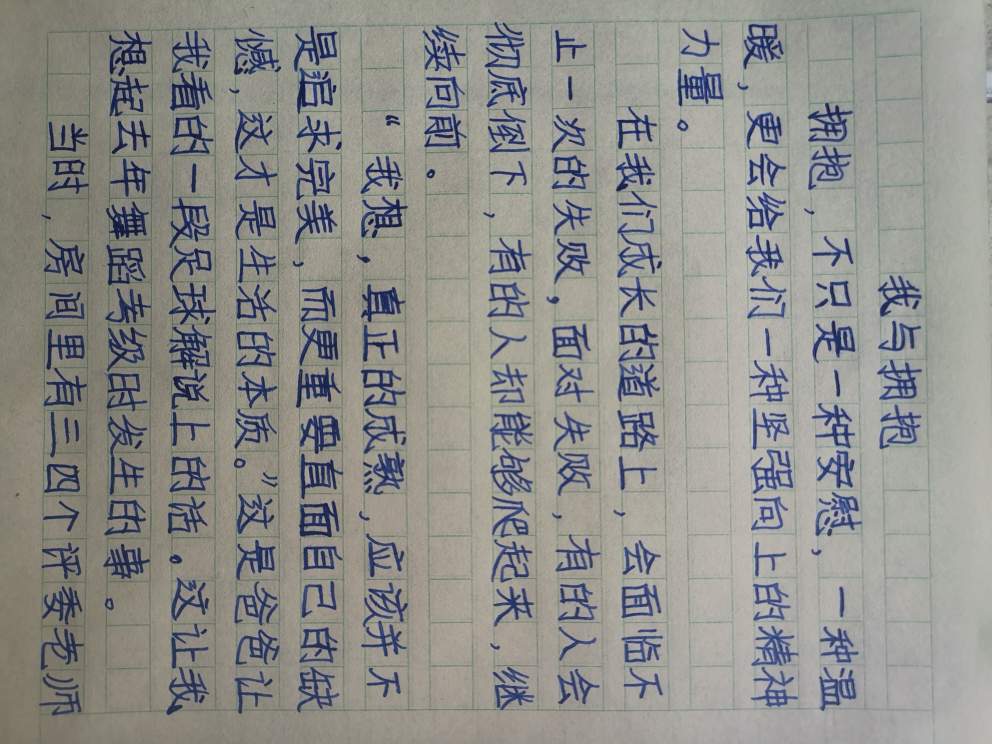 我与拥抱
拥抱，不只是一种安慰，一种温
暖，更会给我们一种坚强向上的精神
力量。
在我们成长的道路上，会面临不
止一次的失败，面对失败，有的人会
彻底倒下，有的人却能够爬起来，继
续向前。
“我想，真正的成熟，应该并不
是追求完美，而更重要直面自己的缺
憾，这才是生活的本质。”这是爸爸让
我看的一段足球解说上的话。这让我
想起去年舞蹈考级时发生的事。
当时，房间里有三四个评委老师